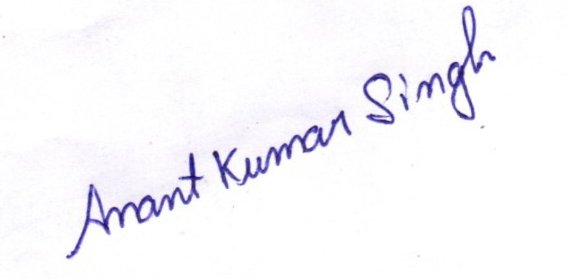 Anant Kumar Singh